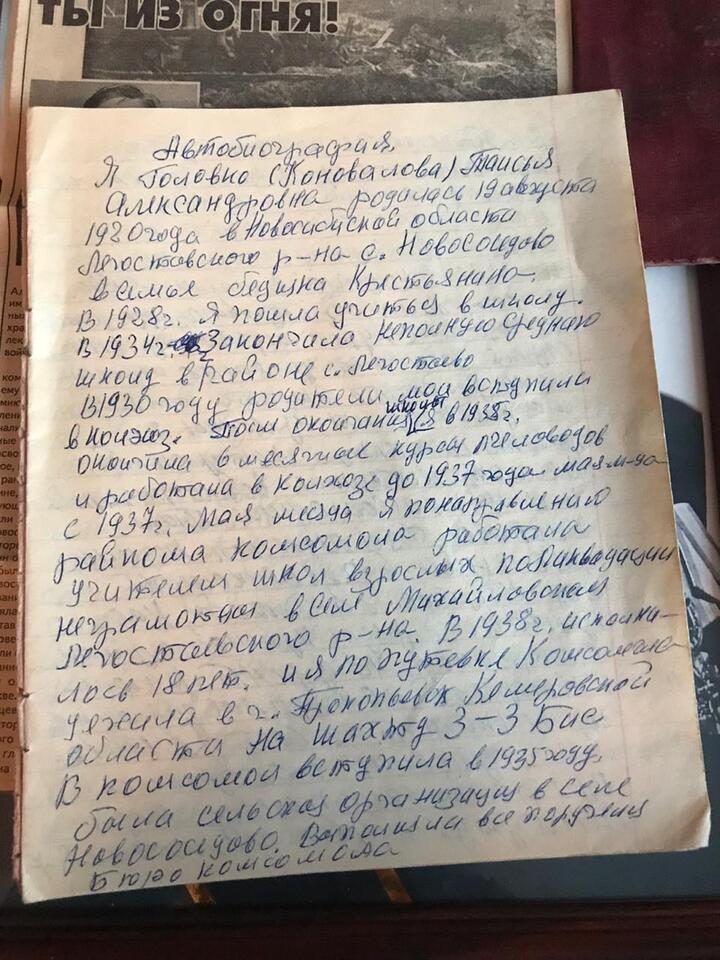 ТЫ ИЗ ОГНЯ!
Автобиография
Я Головко (Коновалова) Таисья
Александровна родилась 19 августа
1920 года в Новосибирской области
Легостаевского р-на с. Новососедово
в семье бедняка Крестьянина.
В 1928г. Я пошла учиться в школу.
В 1934г. Закончила неполную Среднюю
школу в районе с. Легостаево
В 1930 году родители мои вступили
в колхоз. После окончания школы я в 1938г.
окончила 6 месячные курсы пчеловодов
и работала в колхозе до 1937 года мая м-ца
с 1937г. Мая месяца я понаправлению
райкома комсомола работала
учителем школ взрослых поликвидации
неграмотных в селе Михайловском
Легостаевского р-на. В 1938г. исполни-
лось 18 лет. и я по путевке Комсомола
уехала в г. Прокопьевск Кемеровской
области на шахту 3-3 Бис
В комсомол вступила в 1935 году.
была сельская организация в селе
Новососедово. Выполняла все поручения
Бюро комсомола